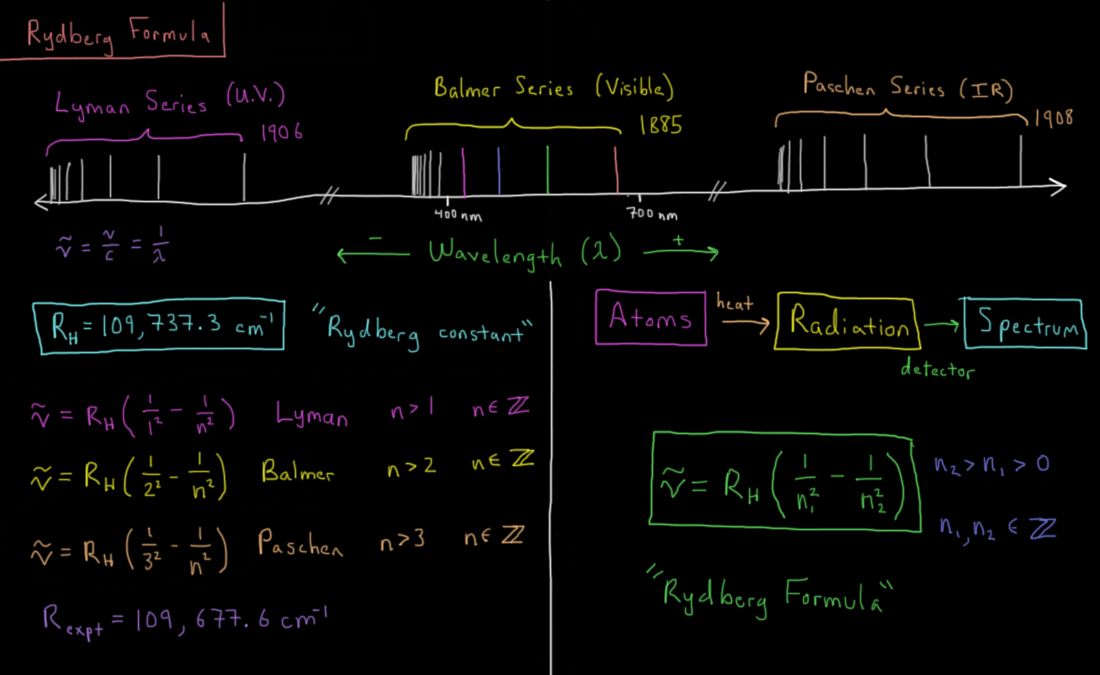 Rydberg Formula
Lyman Series (U.V.)
1906
Balmer Series (Visible)
1885
Paschen Series (IR)
1908
400 nm
700 nm
ṽ = ν/c = 1/λ
← − Wavelength (λ) + →
R_H = 109,737.3 cm⁻¹
"Rydberg constant"
ṽ = R_H (1/1² − 1/n²) Lyman n>1 n∈ℤ
ṽ = R_H (1/2² − 1/n²) Balmer n>2 n∈ℤ
ṽ = R_H (1/3² − 1/n²) Paschen n>3 n∈ℤ
R_expt = 109,677.6 cm⁻¹
Atoms heat → Radiation → Spectrum
detector
ṽ = R_H (1/n₁² − 1/n₂²)
n₂ > n₁ > 0
n₁, n₂ ∈ ℤ
"Rydberg Formula"